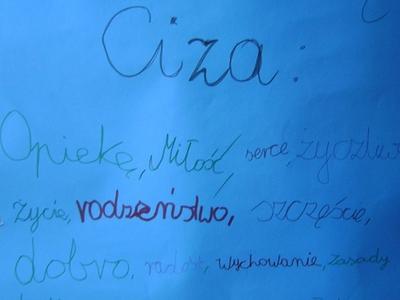 Ciza:
Opiekę, Miłość, serce, życzliw
życie, rodzeństwo, szczęście,
dobro, radość, wychowanie, zasady